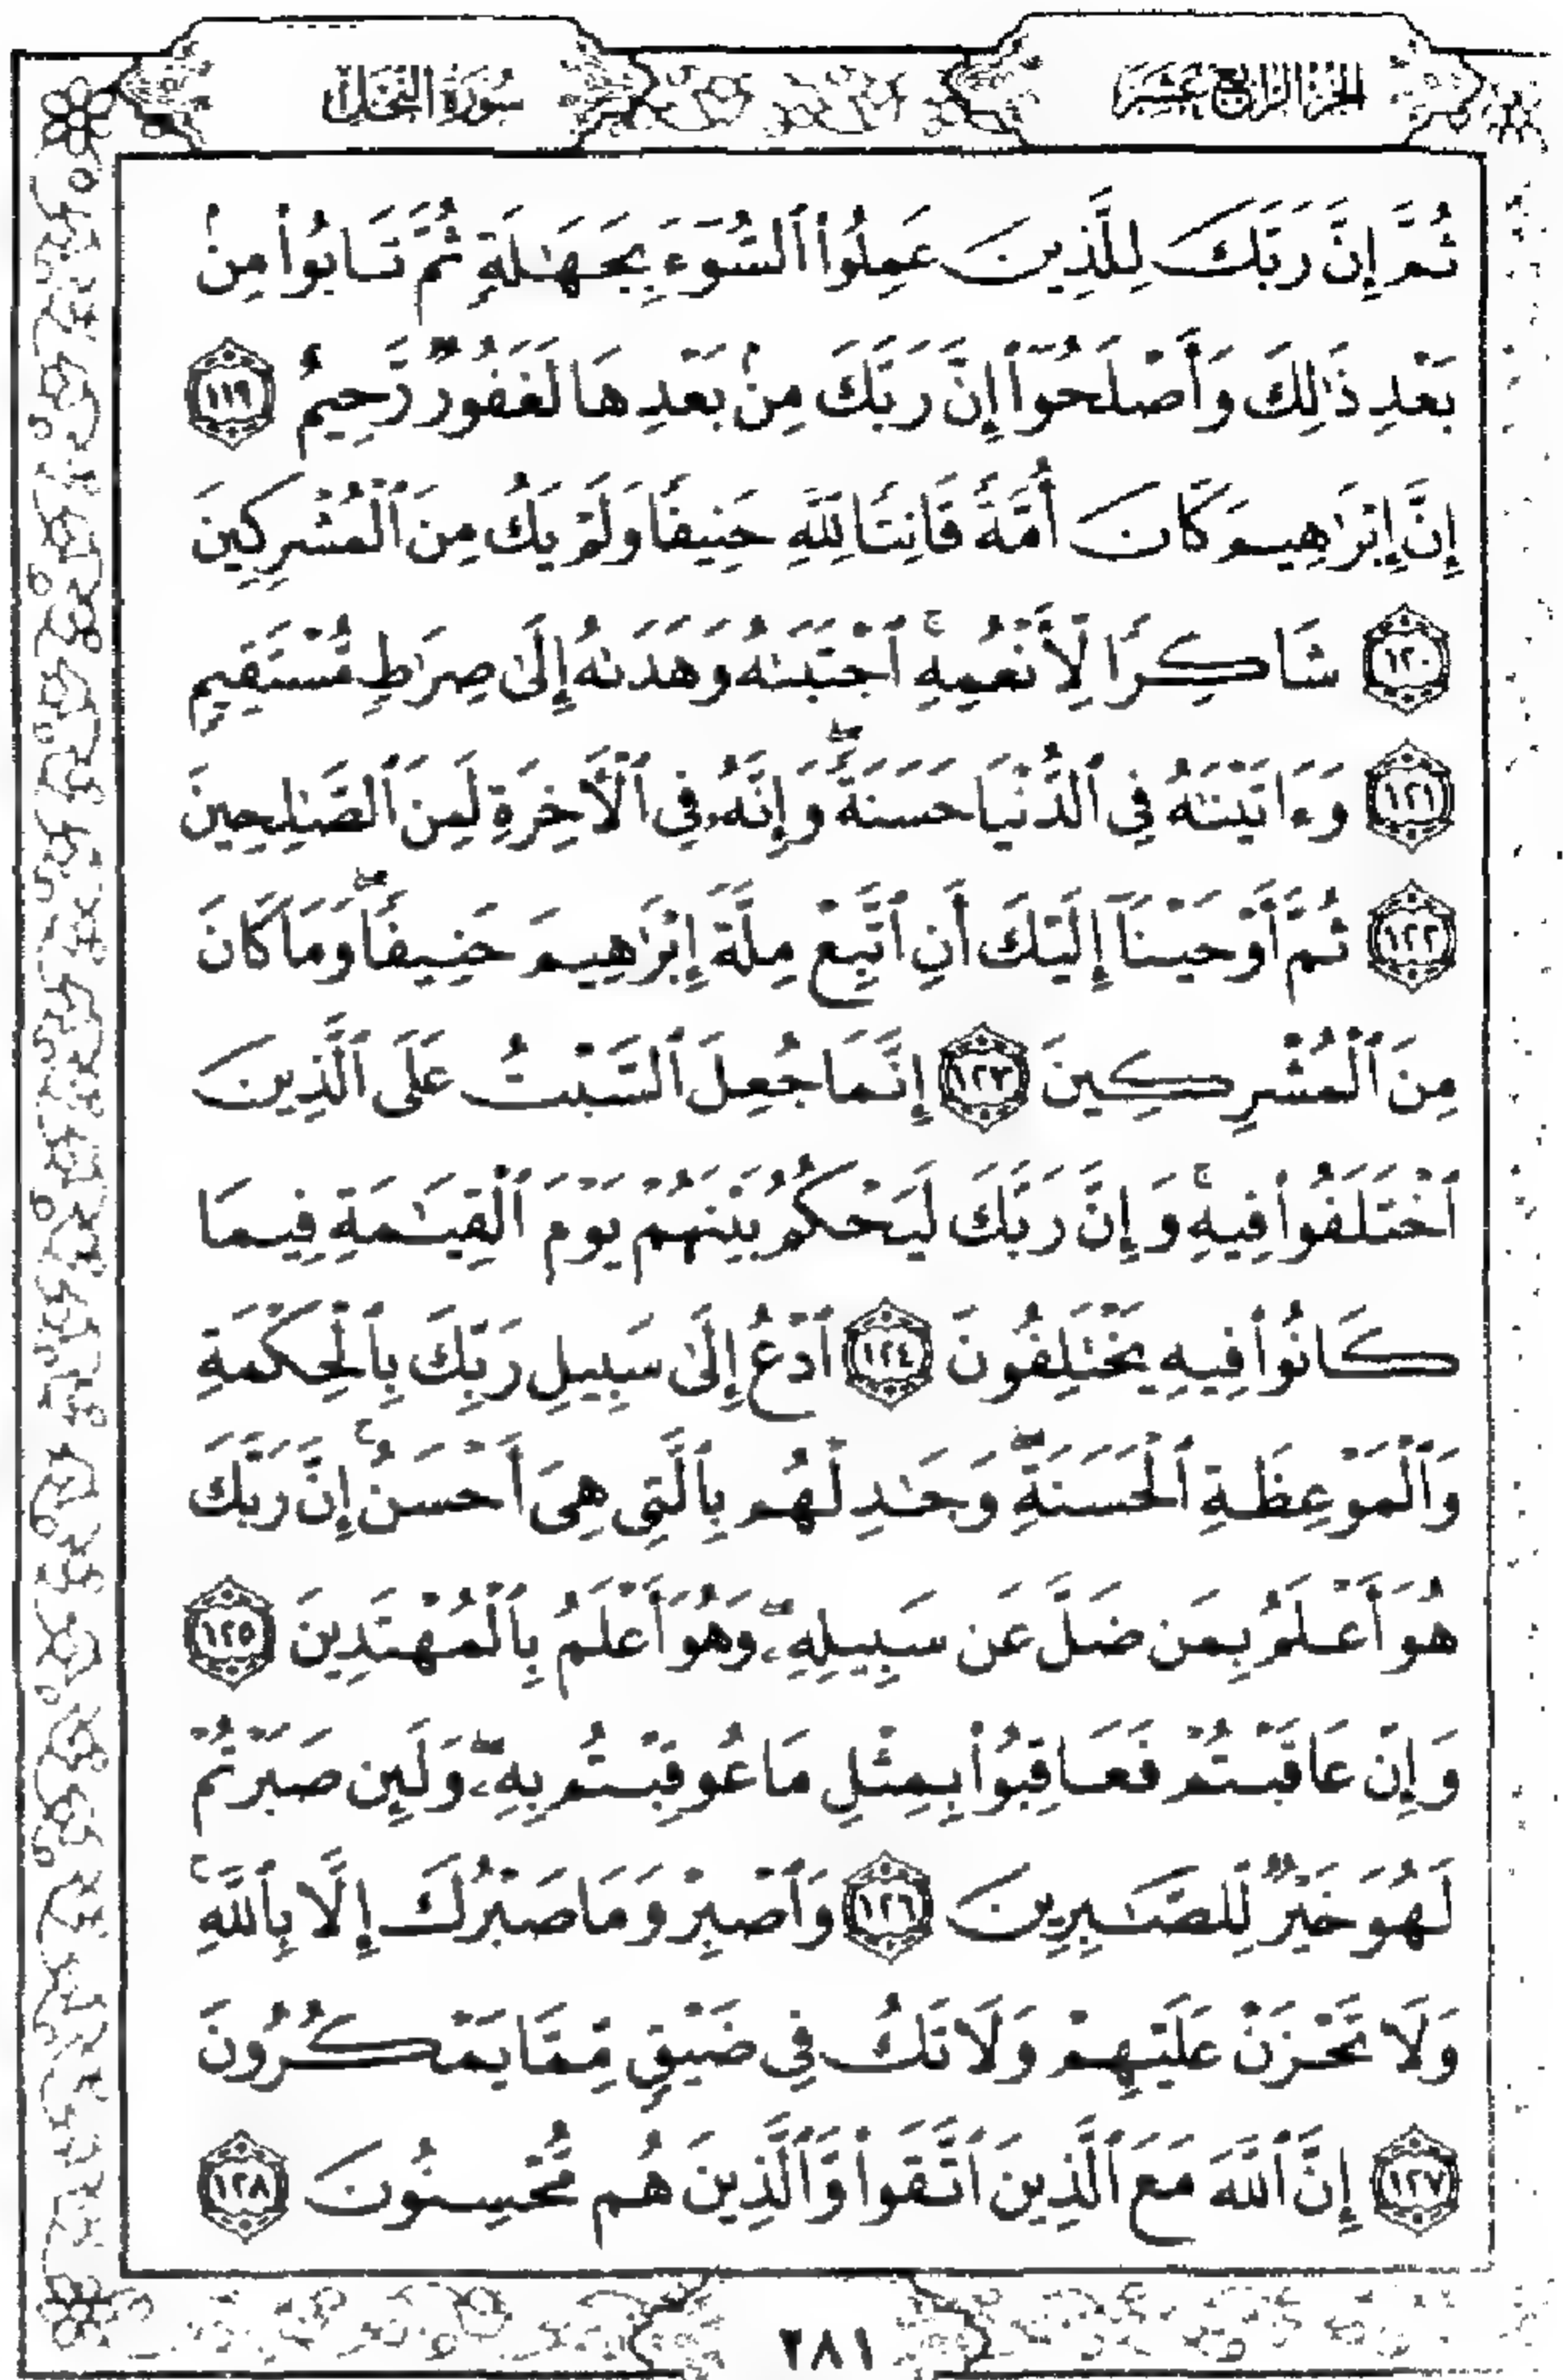 الجزء الرابع عشر
سورة النحل
ثُمَّ إِنَّ رَبَّكَ لِلَّذِينَ عَمِلُوا۟ ٱلسُّوٓءَ بِجَهَـٰلَةٍ ثُمَّ تَابُوا۟ مِنۢ
بَعْدِ ذَٰلِكَ وَأَصْلَحُوٓا۟ إِنَّ رَبَّكَ مِنۢ بَعْدِهَا لَغَفُورٌ رَّحِيمٌ ١١٩
إِنَّ إِبْرَٰهِيمَ كَانَ أُمَّةً قَانِتًا لِلَّهِ حَنِيفًا وَلَمْ يَكُ مِنَ ٱلْمُشْرِكِينَ
١٢٠ شَاكِرًا لِّأَنْعُمِهِ ۚ ٱجْتَبَىٰهُ وَهَدَىٰهُ إِلَىٰ صِرَٰطٍ مُّسْتَقِيمٍ
١٢١ وَءَاتَيْنَـٰهُ فِى ٱلدُّنْيَا حَسَنَةً ۖ وَإِنَّهُۥ فِى ٱلْأَخِرَةِ لَمِنَ ٱلصَّـٰلِحِينَ
١٢٢ ثُمَّ أَوْحَيْنَآ إِلَيْكَ أَنِ ٱتَّبِعْ مِلَّةَ إِبْرَٰهِيمَ حَنِيفًا ۖ وَمَا كَانَ
مِنَ ٱلْمُشْرِكِينَ ١٢٣ إِنَّمَا جُعِلَ ٱلسَّبْتُ عَلَى ٱلَّذِينَ
ٱخْتَلَفُوا۟ فِيهِ ۚ وَإِنَّ رَبَّكَ لَيَحْكُمُ بَيْنَهُمْ يَوْمَ ٱلْقِيَـٰمَةِ فِيمَا
كَانُوا۟ فِيهِ يَخْتَلِفُونَ ١٢٤ ٱدْعُ إِلَىٰ سَبِيلِ رَبِّكَ بِٱلْحِكْمَةِ
وَٱلْمَوْعِظَةِ ٱلْحَسَنَةِ ۖ وَجَـٰدِلْهُم بِٱلَّتِى هِىَ أَحْسَنُ ۚ إِنَّ رَبَّكَ
هُوَ أَعْلَمُ بِمَن ضَلَّ عَن سَبِيلِهِۦ ۖ وَهُوَ أَعْلَمُ بِٱلْمُهْتَدِينَ ١٢٥
وَإِنْ عَاقَبْتُمْ فَعَاقِبُوا۟ بِمِثْلِ مَا عُوقِبْتُم بِهِۦ ۖ وَلَئِن صَبَرْتُمْ
لَهُوَ خَيْرٌ لِّلصَّـٰبِرِينَ ١٢٦ وَٱصْبِرْ وَمَا صَبْرُكَ إِلَّا بِٱللَّهِ ۚ
وَلَا تَحْزَنْ عَلَيْهِمْ وَلَا تَكُ فِى ضَيْقٍ مِّمَّا يَمْكُرُونَ
١٢٧ إِنَّ ٱللَّهَ مَعَ ٱلَّذِينَ ٱتَّقَوا۟ وَّٱلَّذِينَ هُم مُّحْسِنُونَ ١٢٨
٢٨١